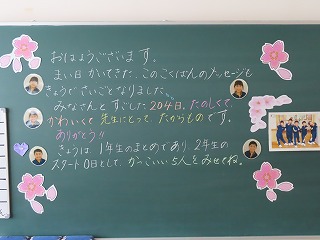 おはようございます。
まい日かいてきた、このこくばんのメッセージも
きょうでさいごとなりました。
みなさんとすごした204日。たのしくて、
かわいくて先生にとって、たからものです。
ありがとう!!
きょうは、1年生のまとめであり、2年生の
スタート0日として、かっこいい5人をみせてね。